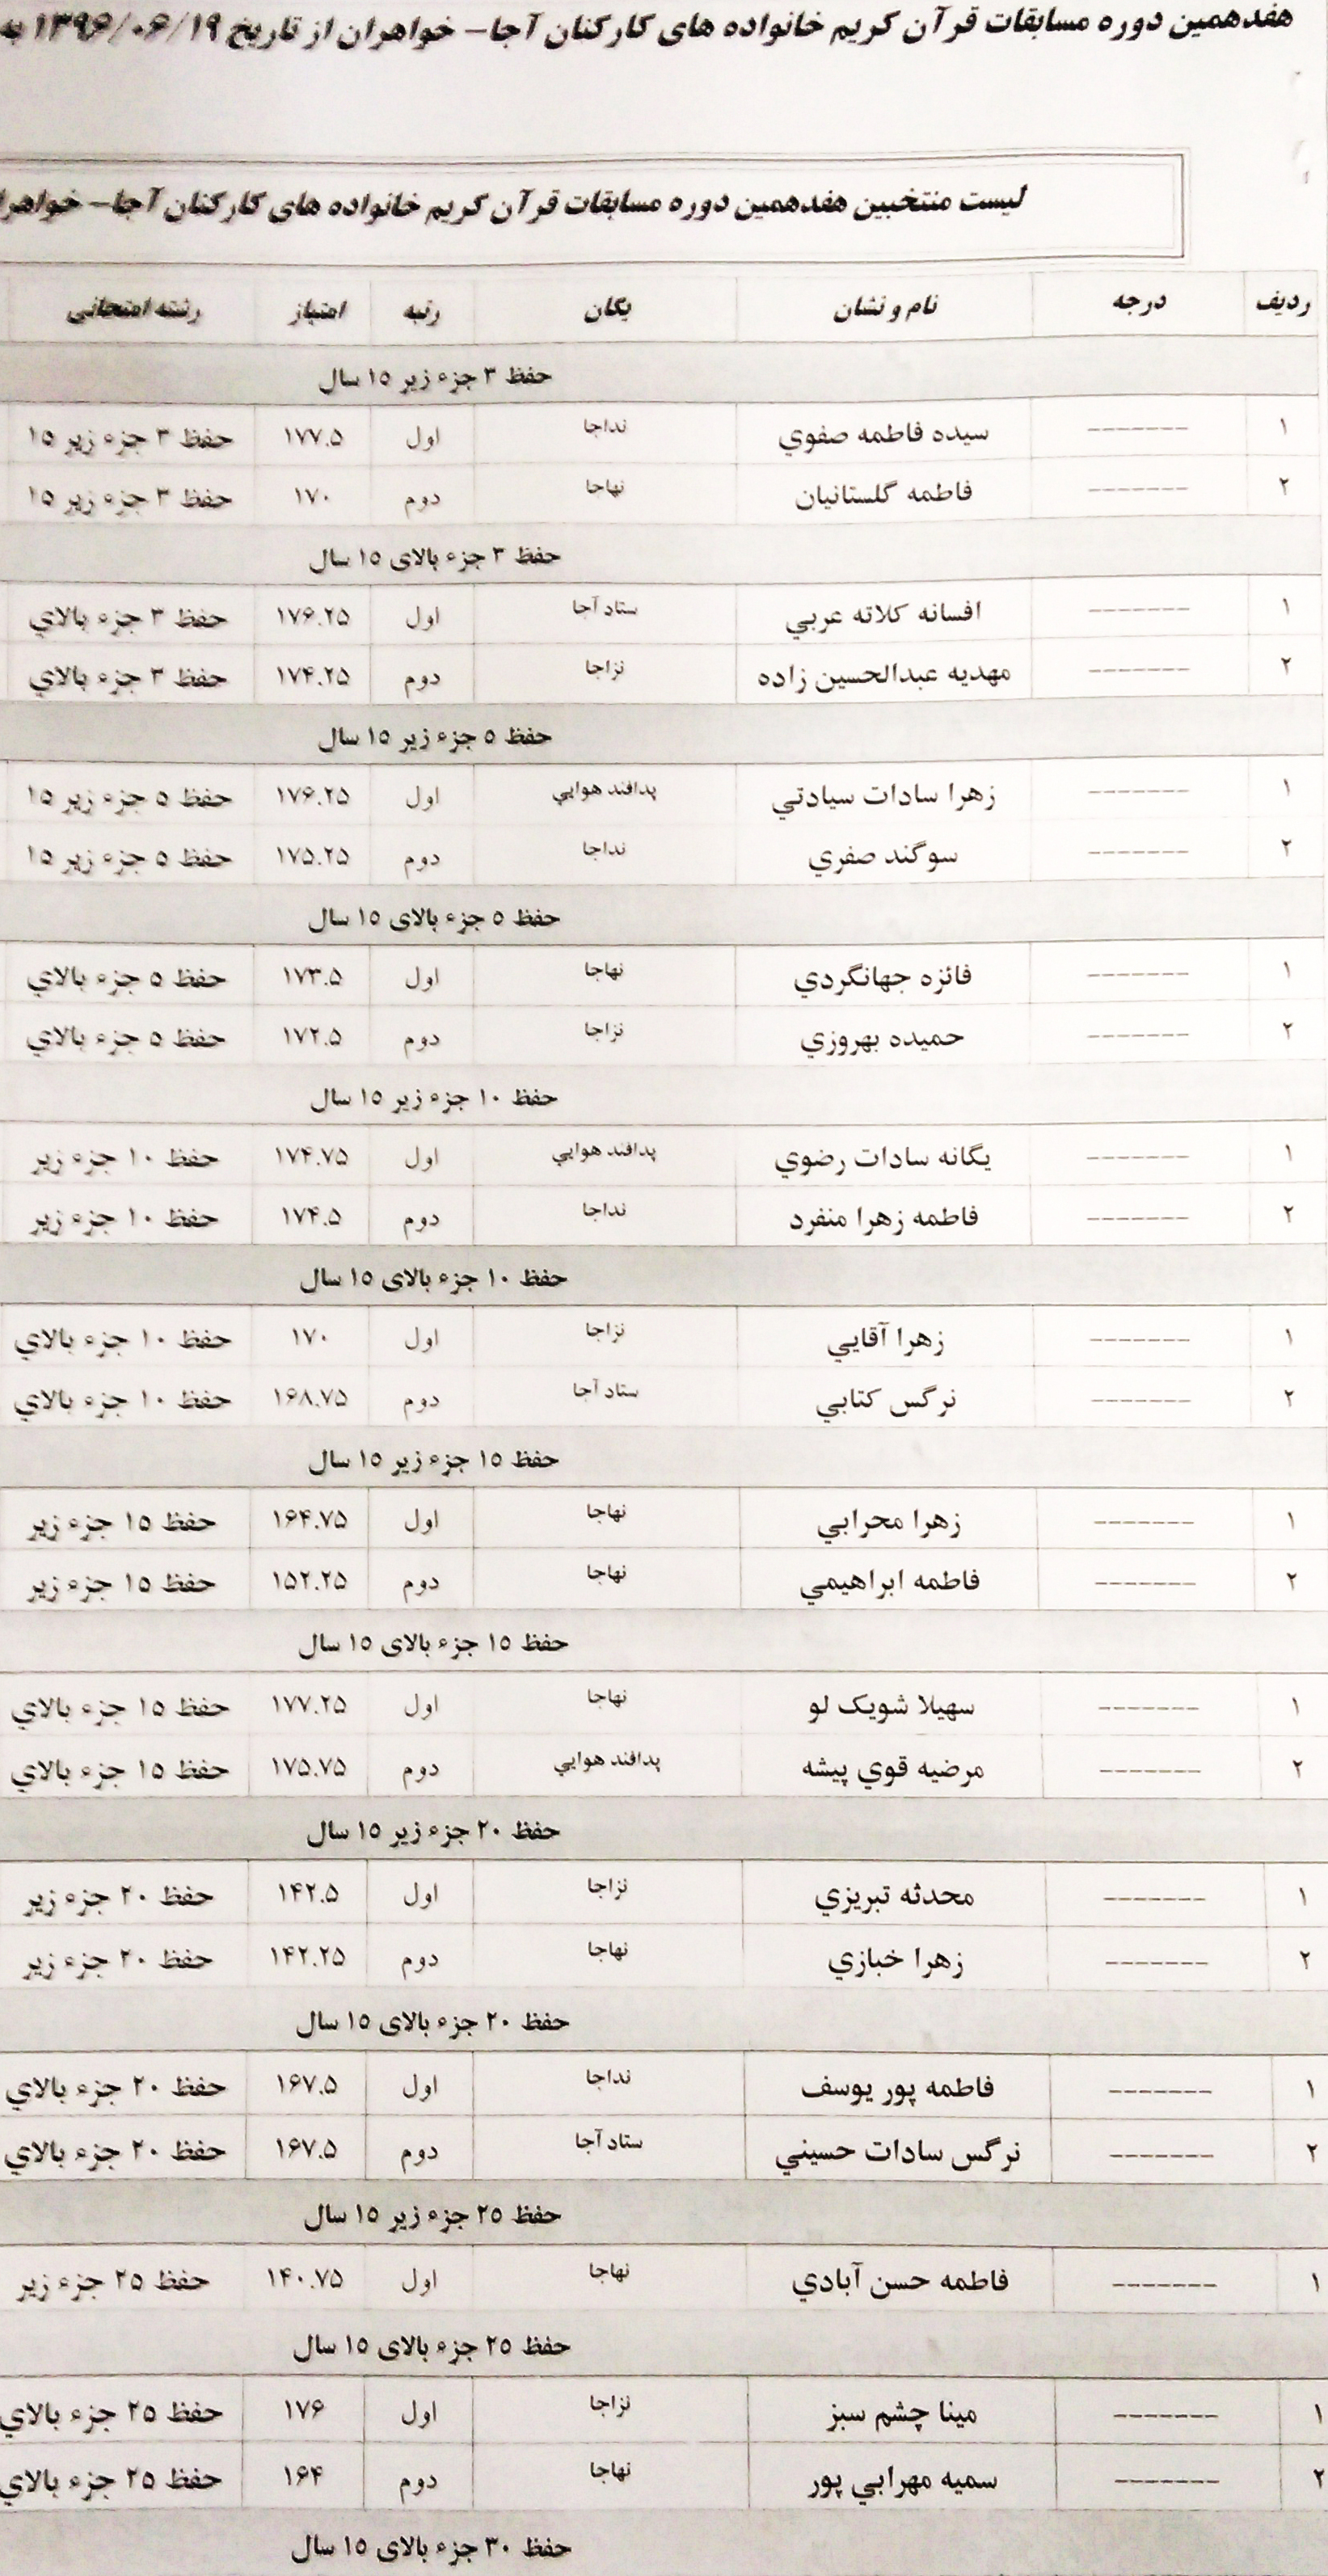 هفدهمین دوره مسابقات قرآن کریم خانواده های کارکنان آجا- خواهران از تاریخ ۱۳۹۶/۰۶/۱۹ به
لیست منتخبین هفدهمین دوره مسابقات قرآن کریم خانواده های کارکنان آجا- خواهرا
ردیف درجه نام و نشان یگان رتبه امتیاز رشته امتحانی
حفظ ۳ جزء زیر ۱۵ سال
۱ ------- سيده فاطمه صفوي نداجا اول ۱۷۷.۵ حفظ ۳ جزء زير ۱۵
۲ ------- فاطمه گلستانيان نهاجا دوم ۱۷۰ حفظ ۳ جزء زير ۱۵
حفظ ۳ جزء بالای ۱۵ سال
۱ ------- افسانه كلاته عربي ستاد آجا اول ۱۷۶.۲۵ حفظ ۳ جزء بالاي
۲ ------- مهديه عبدالحسين زاده نزاجا دوم ۱۷۴.۲۵ حفظ ۳ جزء بالاي
حفظ ۵ جزء زیر ۱۵ سال
۱ ------- زهرا سادات سيادتي پدافند هوايي اول ۱۷۶.۲۵ حفظ ۵ جزء زير ۱۵
۲ ------- سوگند صفري نداجا دوم ۱۷۵.۲۵ حفظ ۵ جزء زير ۱۵
حفظ ۵ جزء بالای ۱۵ سال
۱ ------- فائزه جهانگردي نهاجا اول ۱۷۳.۵ حفظ ۵ جزء بالاي
۲ ------- حميده بهروزي نزاجا دوم ۱۷۲.۵ حفظ ۵ جزء بالاي
حفظ ۱۰ جزء زیر ۱۵ سال
۱ ------- يگانه سادات رضوي پدافند هوايي اول ۱۷۴.۷۵ حفظ ۱۰ جزء زير
۲ ------- فاطمه زهرا منفرد نداجا دوم ۱۷۴.۵ حفظ ۱۰ جزء زير
حفظ ۱۰ جزء بالای ۱۵ سال
۱ ------- زهرا آقايي نزاجا اول ۱۷۰ حفظ ۱۰ جزء بالاي
۲ ------- نرگس كتابي ستاد آجا دوم ۱۶۸.۷۵ حفظ ۱۰ جزء بالاي
حفظ ۱۵ جزء زیر ۱۵ سال
۱ ------- زهرا محرابي نهاجا اول ۱۶۴.۷۵ حفظ ۱۵ جزء زير
۲ ------- فاطمه ابراهيمي نهاجا دوم ۱۵۲.۲۵ حفظ ۱۵ جزء زير
حفظ ۱۵ جزء بالای ۱۵ سال
۱ ------- سهيلا شويک لو نهاجا اول ۱۷۷.۲۵ حفظ ۱۵ جزء بالاي
۲ ------- مرضيه قوي پيشه پدافند هوايي دوم ۱۷۵.۷۵ حفظ ۱۵ جزء بالاي
حفظ ۲۰ جزء زیر ۱۵ سال
۱ ------- محدثه تبريزي نزاجا اول ۱۴۲.۵ حفظ ۲۰ جزء زير
۲ ------- زهرا خبازي نهاجا دوم ۱۴۲.۲۵ حفظ ۲۰ جزء زير
حفظ ۲۰ جزء بالای ۱۵ سال
۱ ------- فاطمه پور يوسف نداجا اول ۱۶۷.۵ حفظ ۲۰ جزء بالاي
۲ ------- نرگس سادات حسيني ستاد آجا دوم ۱۶۷.۵ حفظ ۲۰ جزء بالاي
حفظ ۲۵ جزء زیر ۱۵ سال
۱ ------- فاطمه حسن آبادي نهاجا اول ۱۴۰.۷۵ حفظ ۲۵ جزء زير
حفظ ۲۵ جزء بالای ۱۵ سال
۱ ------- مينا چشم سبز نزاجا اول ۱۷۶ حفظ ۲۵ جزء بالاي
۲ ------- سميه مهرابي پور نهاجا دوم ۱۶۴ حفظ ۲۵ جزء بالاي
حفظ ۳۰ جزء بالای ۱۵ سال